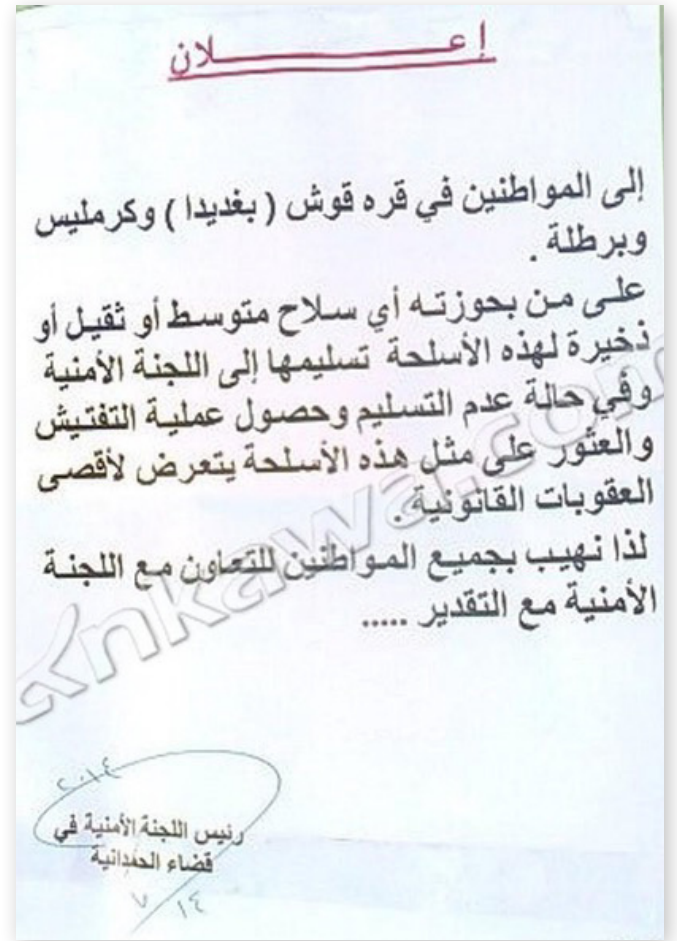 إعـــــــــلان
إلى المواطنين في قره قوش ( بغديدا ) وكرمليس
وبرطلة .
على من بحوزته أي سلاح متوسط أو ثقيل أو
ذخيرة لهذه الأسلحة تسليمها إلى اللجنة الأمنية
وفي حالة عدم التسليم وحصول عملية التفتيش
والعثور على مثل هذه الأسلحة يتعرض لأقصى
العقوبات القانونية .
لذا نهيب بجميع المواطنين للتعاون مع اللجنة
الأمنية مع التقدير .....
ankawa.com
٢٠١٤
رئيس اللجنة الأمنية في
قضاء الحمدانية
٧/١٤